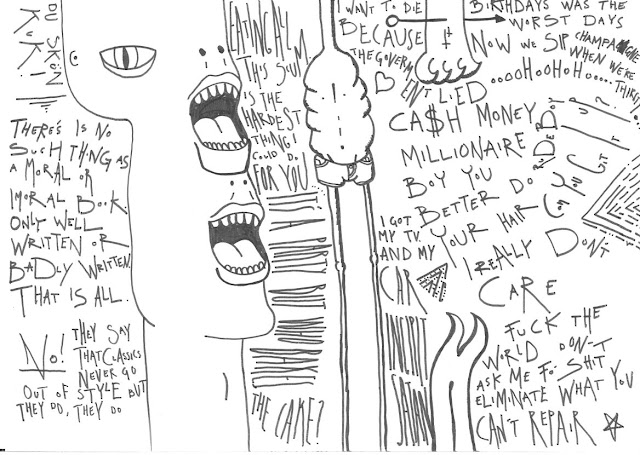 DU SKJØN
KUK!
THERE'S IS NO
SUCH THING AS
A MORAL OR
IMORAL BOOK.
ONLY WELL
WRITTEN OR
BADLY WRITTEN.
THAT IS ALL.
No!
THEY SAY
THAT CLASSICS
NEVER GO
OUT OF STYLE BUT
THEY DO, THEY DO
EATING ALL
THIS
IS THE
HARDEST
THING I
COULD DO
FOR YOU
THE CAKE?
I WANT TO DIE
BECAUSE
THE GOVERM
ENT LIED
BIRTHDAYS WAS THE
WORST DAYS
NOW WE SIP CHAMPAGNE
WHEN WE'RE
THIRSTY
....oHoOHoHo....
CA$H MONEY
MILLIONAIRE
BOY YOU
BETTER DO
YOUR HAIR
I REALLY DON'T
CARE
I GOT
MY TV.
AND MY
CAR
SATAN
FUCK THE
WORLD DON'T
ASK ME FO' SHIT
ELIMINATE WHAT YOU
CAN'T REPAIR